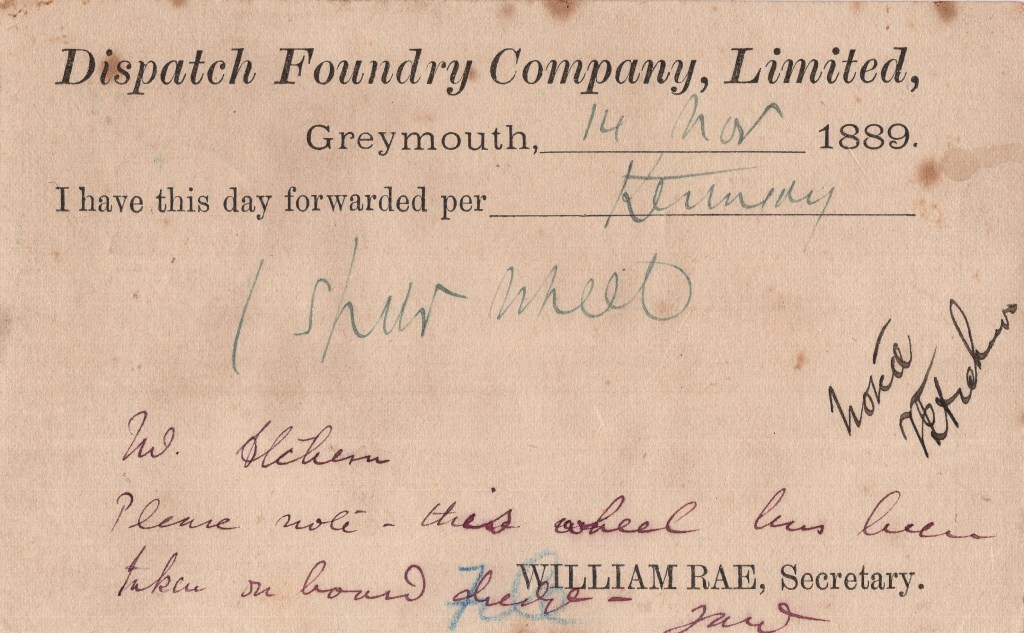 Dispatch Foundry Company, Limited,
Greymouth, 14 Nov 1889.
I have this day forwarded per Kennedy
1 Spur Wheel
Noted
Mr.
Please note - this wheel has been
taken on board dredge -
WILLIAM RAE, Secretary.